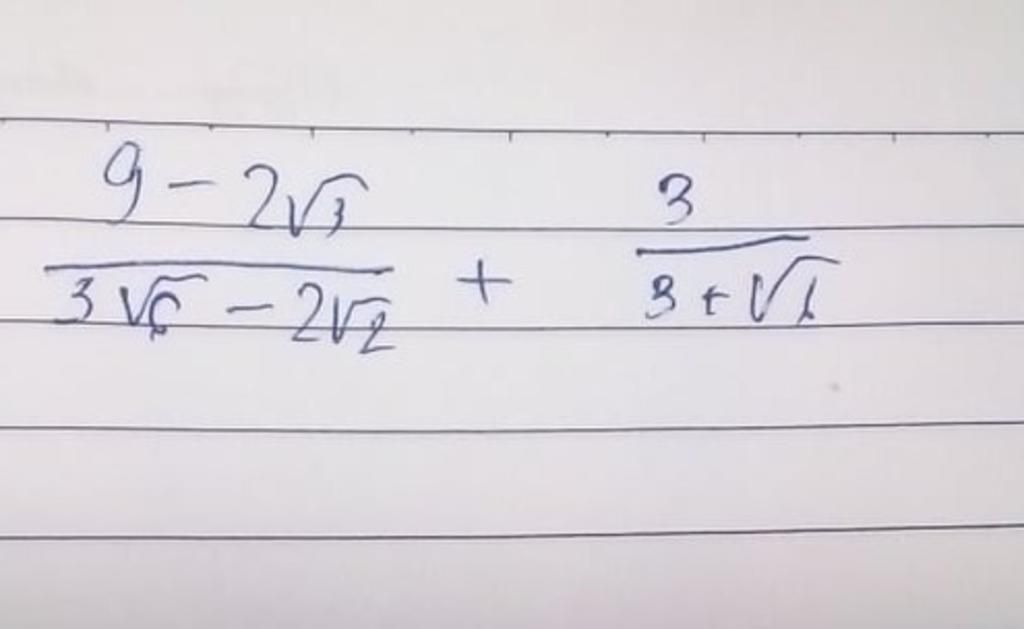 9 - 2√3
3√6 - 2√2
+
3
3 + √6